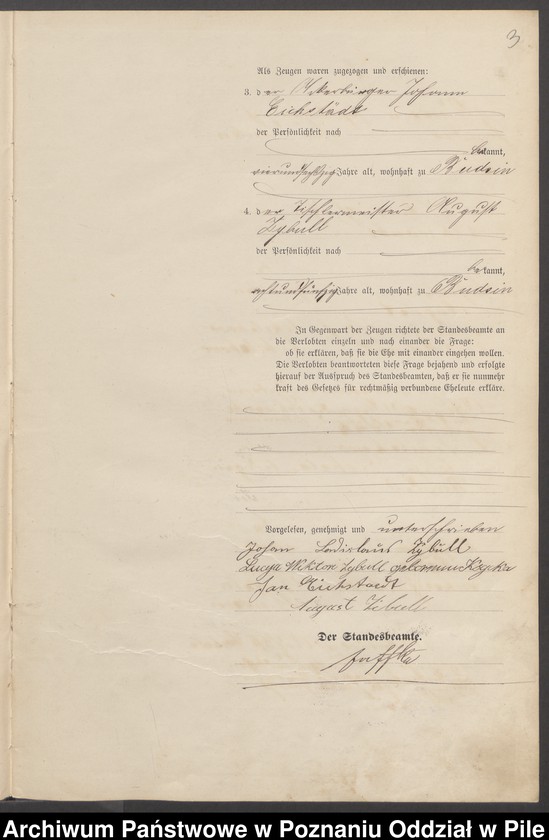 3
Als Zeugen waren zugezogen und erschienen:
3. der Ackerbürger Johann
Eichstädt
der Persönlichkeit nach
bekannt,
vierundsechzig Jahre alt, wohnhaft zu Budsin
4. der Tischlermeister August
Zybull
der Persönlichkeit nach
bekannt,
achtundfünfzig Jahre alt, wohnhaft zu Budsin
In Gegenwart der Zeugen richtete der Standesbeamte an
die Verlobten einzeln und nach einander die Frage:
ob sie erklären, daß sie die Ehe mit einander eingehen wollen.
Die Verlobten beantworteten diese Frage bejahend und erfolgte
hierauf der Ausspruch des Standesbeamten, daß er sie nunmehr
kraft des Gesetzes für rechtmäßig verbundene Eheleute erkläre.
Vorgelesen, genehmigt und unterschrieben
Johan Ladislaus Zybull
Wiktor Zybull
Jan Eichstaedt
August Zibull
Der Standesbeamte.
Archiwum Państwowe w Poznaniu Oddział w Pile